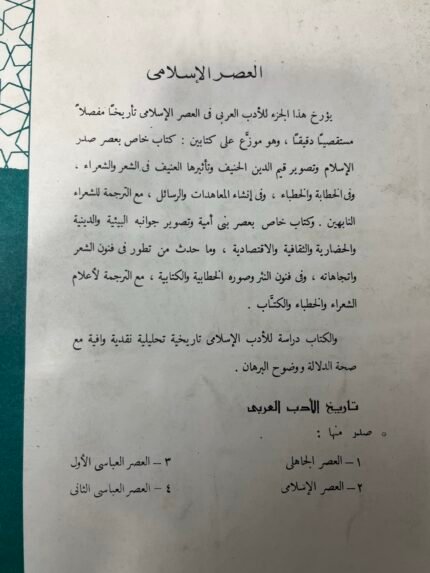 العصر الإسلامى
يؤرخ هذا الجزء للأدب العربى فى العصر الإسلامى تأريخًا مفصلاً
مستقصيًا دقيقًا ، وهو موزَّع على كتابين : كتاب خاص بعصر صدر
الإسلام وتصوير قيم الدين الحنيف وتأثيرها العنيف فى الشعر والشعراء ،
وفى الخطابة والخطباء ، وفى إنشاء المعاهدات والرسائل ، مع الترجمة للشعراء
النابهين . وكتاب خاص بعصر بنى أمية وتصوير جوانبه البيئية والدينية
والحضارية والثقافية والاقتصادية ، وما حدث من تطور فى فنون الشعر
واتجاهاته ، وفى فنون النثر وصوره الخطابية والكتابية ، مع الترجمة لأعلام
الشعراء والخطباء والكتَّاب .
والكتاب دراسة للأدب الإسلامى تاريخية تحليلية نقدية وافية مع
صحة الدلالة ووضوح البرهان .
تاريخ الأدب العربى
صدر منها :
١ – العصر الجاهلى
٣ – العصر العباسى الأول
٢ – العصر الإسلامى
٤ – العصر العباسى الثانى